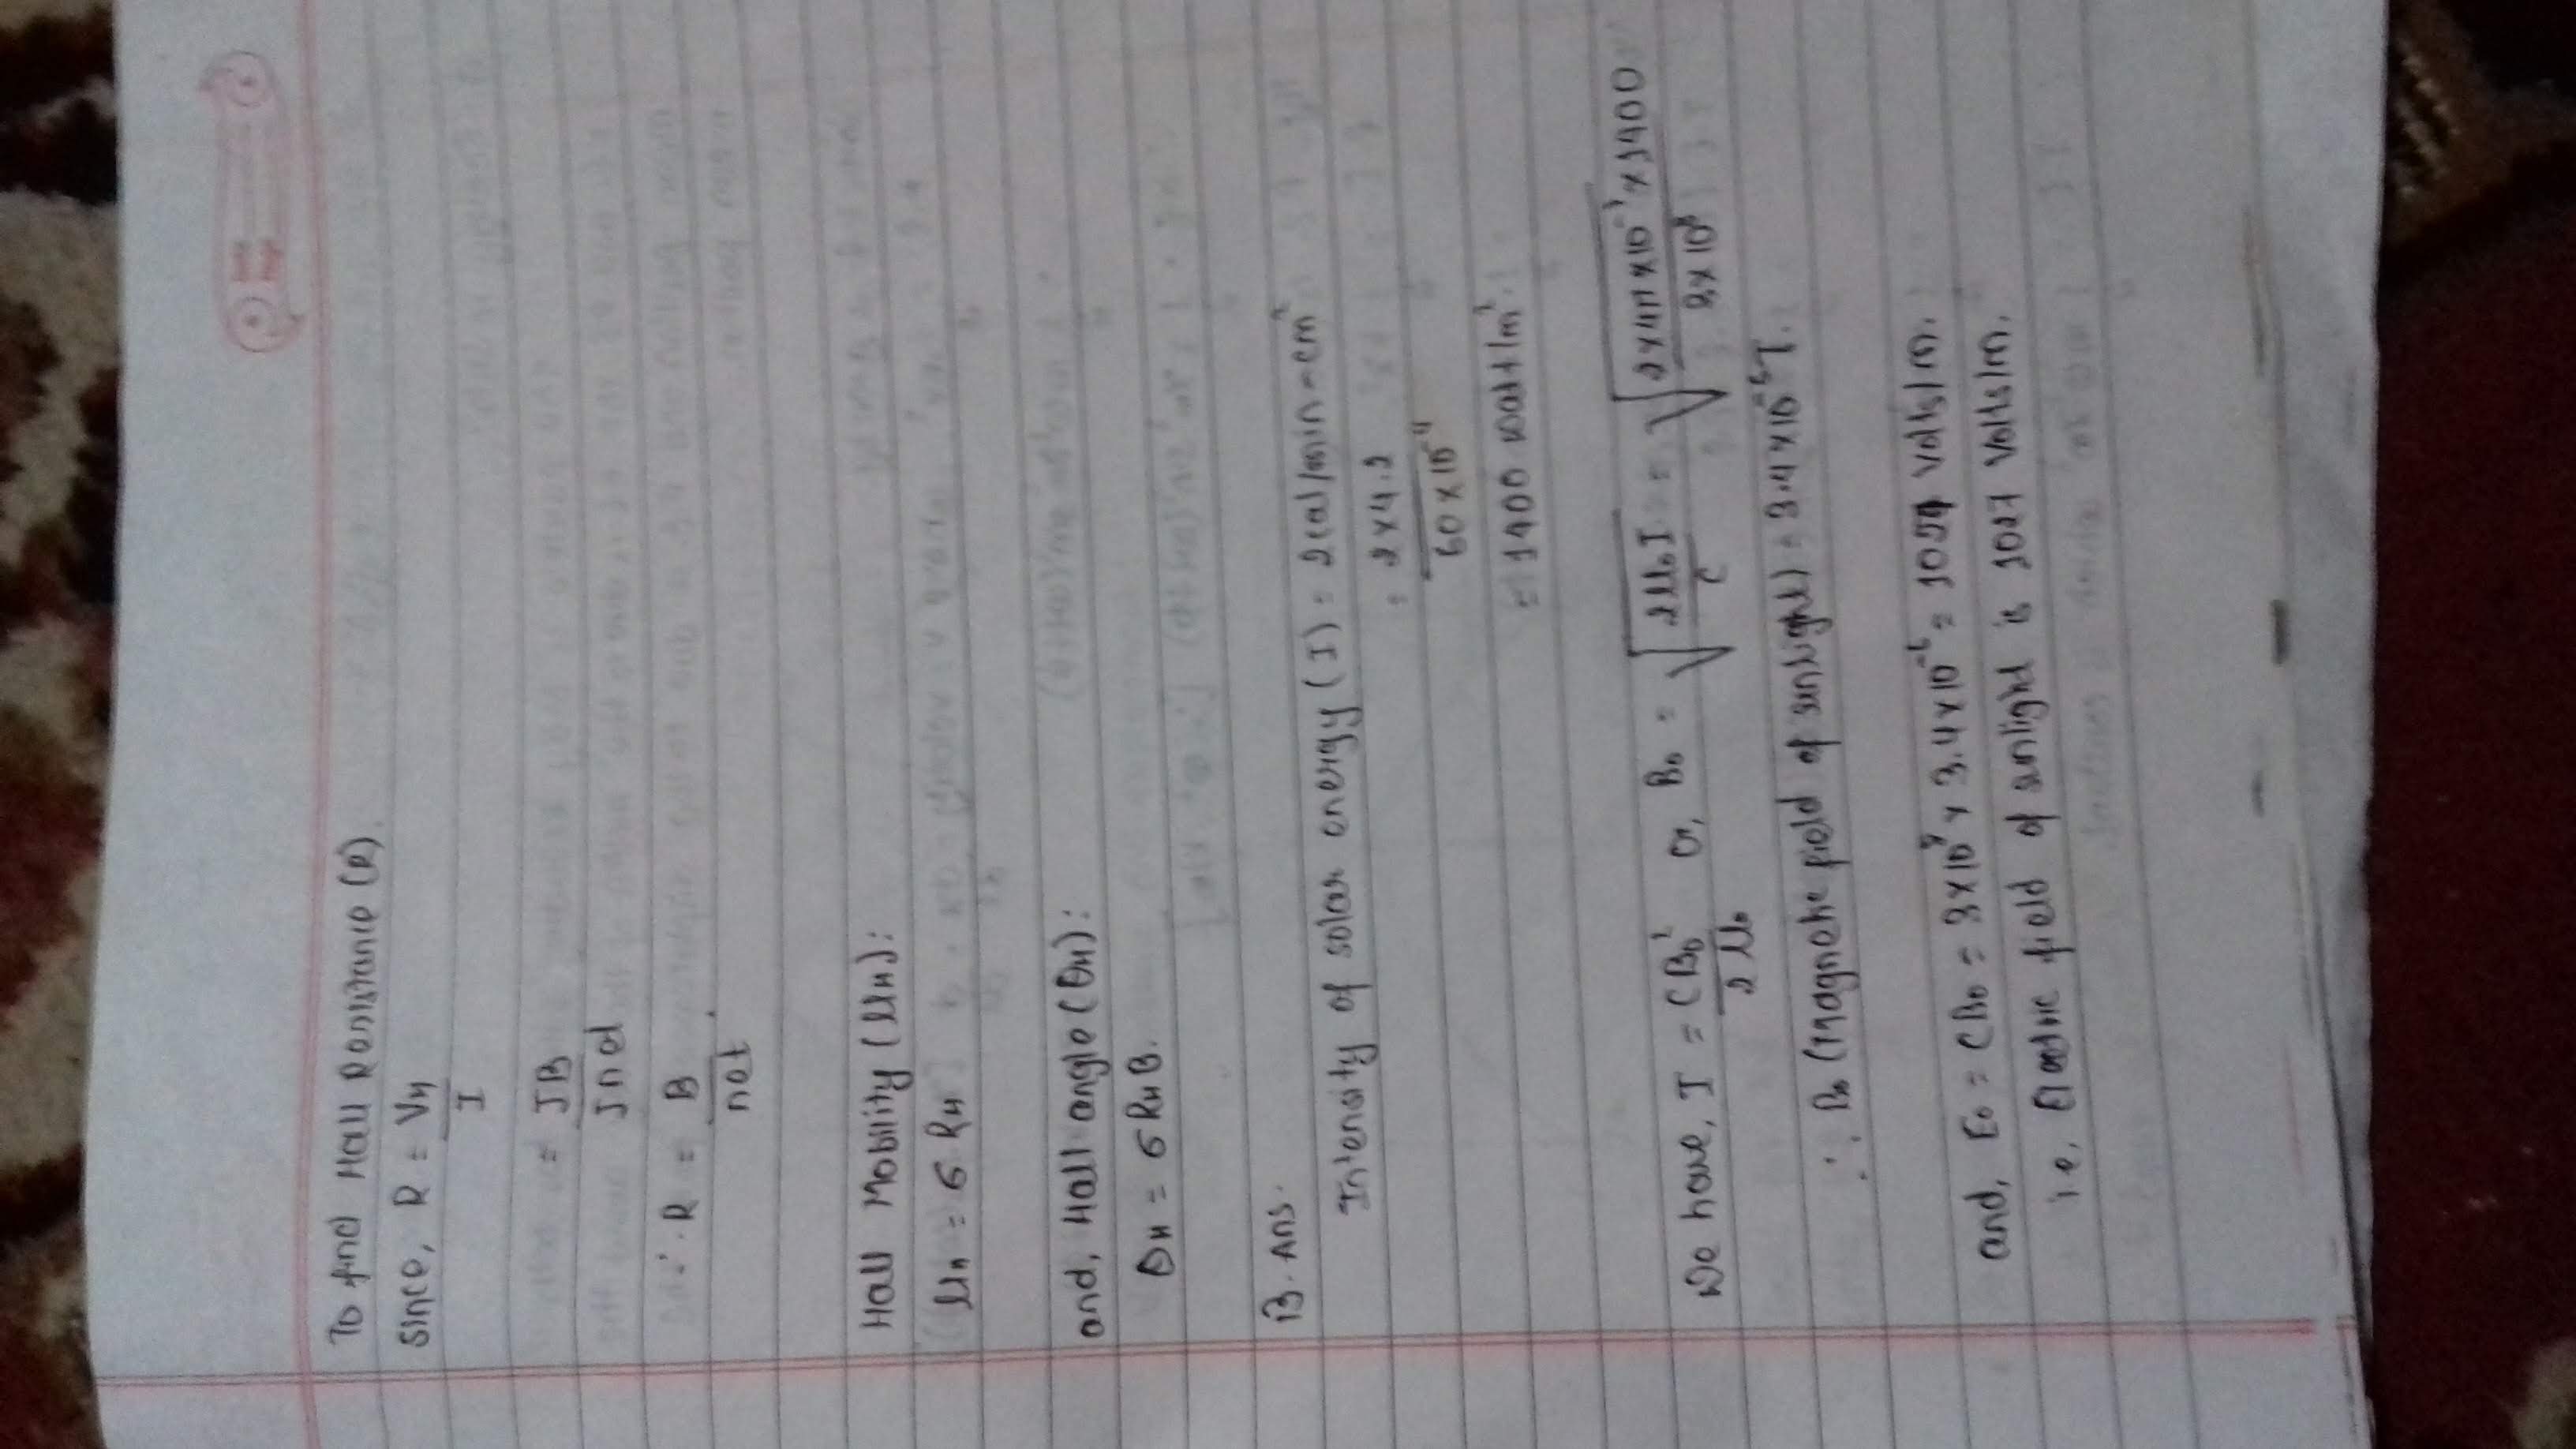 To find Hall Resistance (R).
since, R = VH
I
= IB
Ined
∴ R = B
net
Hall Mobility (μH):
μH = σ RH
and, Hall angle (θH):
θH = σ RH B.
13. Ans.
Intensity of solar energy (I) = 2 cal/min-cm²
= 2×4.2
60×10⁻⁴
= 1400 watt/m².
We have, I = CB₀² or, B₀ = √2μ₀I = √2×4π×10⁻⁷×1400
2μ₀ C 3×10⁸
∴ B₀ (Magnetic field of sunlight) = 3.4×10⁻⁶T.
and, E₀ = CB₀ = 3×10⁸ × 3.4×10⁻⁶ = volts/m.
i.e, Electric field of sunlight is 1027 volts/m.